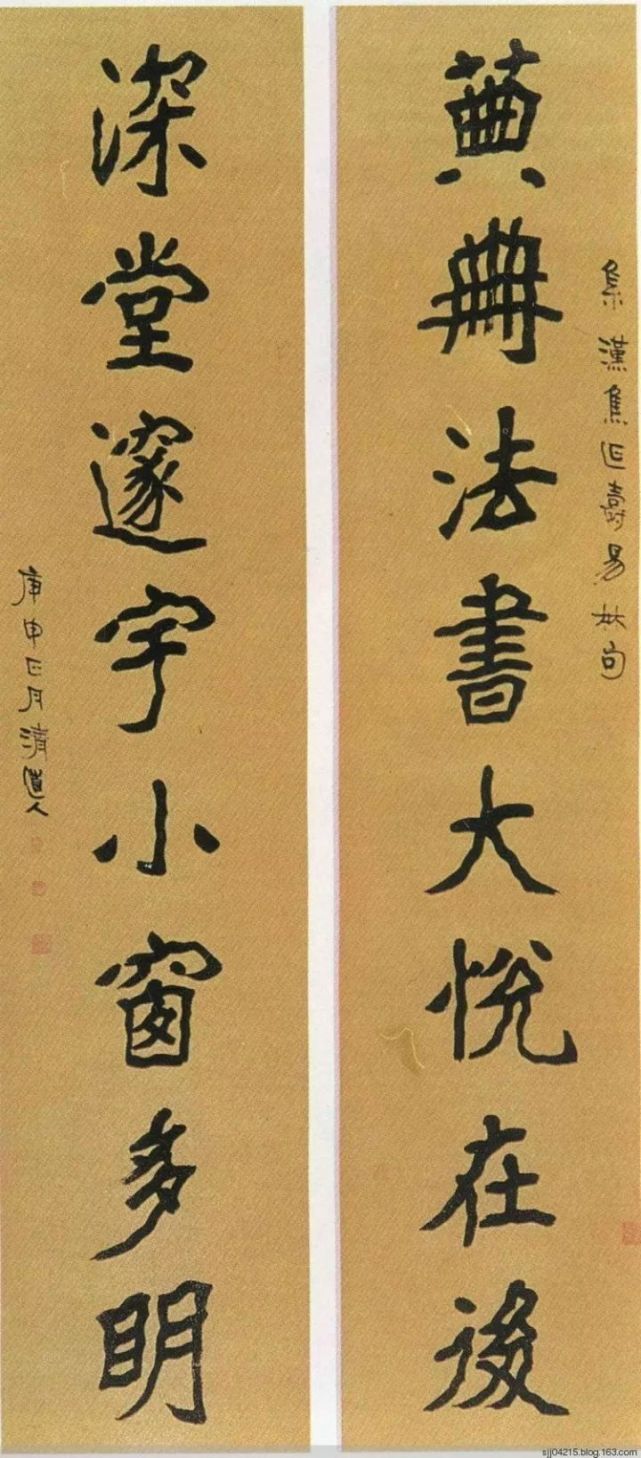 集漢焦延壽易林句
典冊法書大悅在後
深堂邃宇小窗多明
庚申正月清道人
sjj04215.blog.163.com